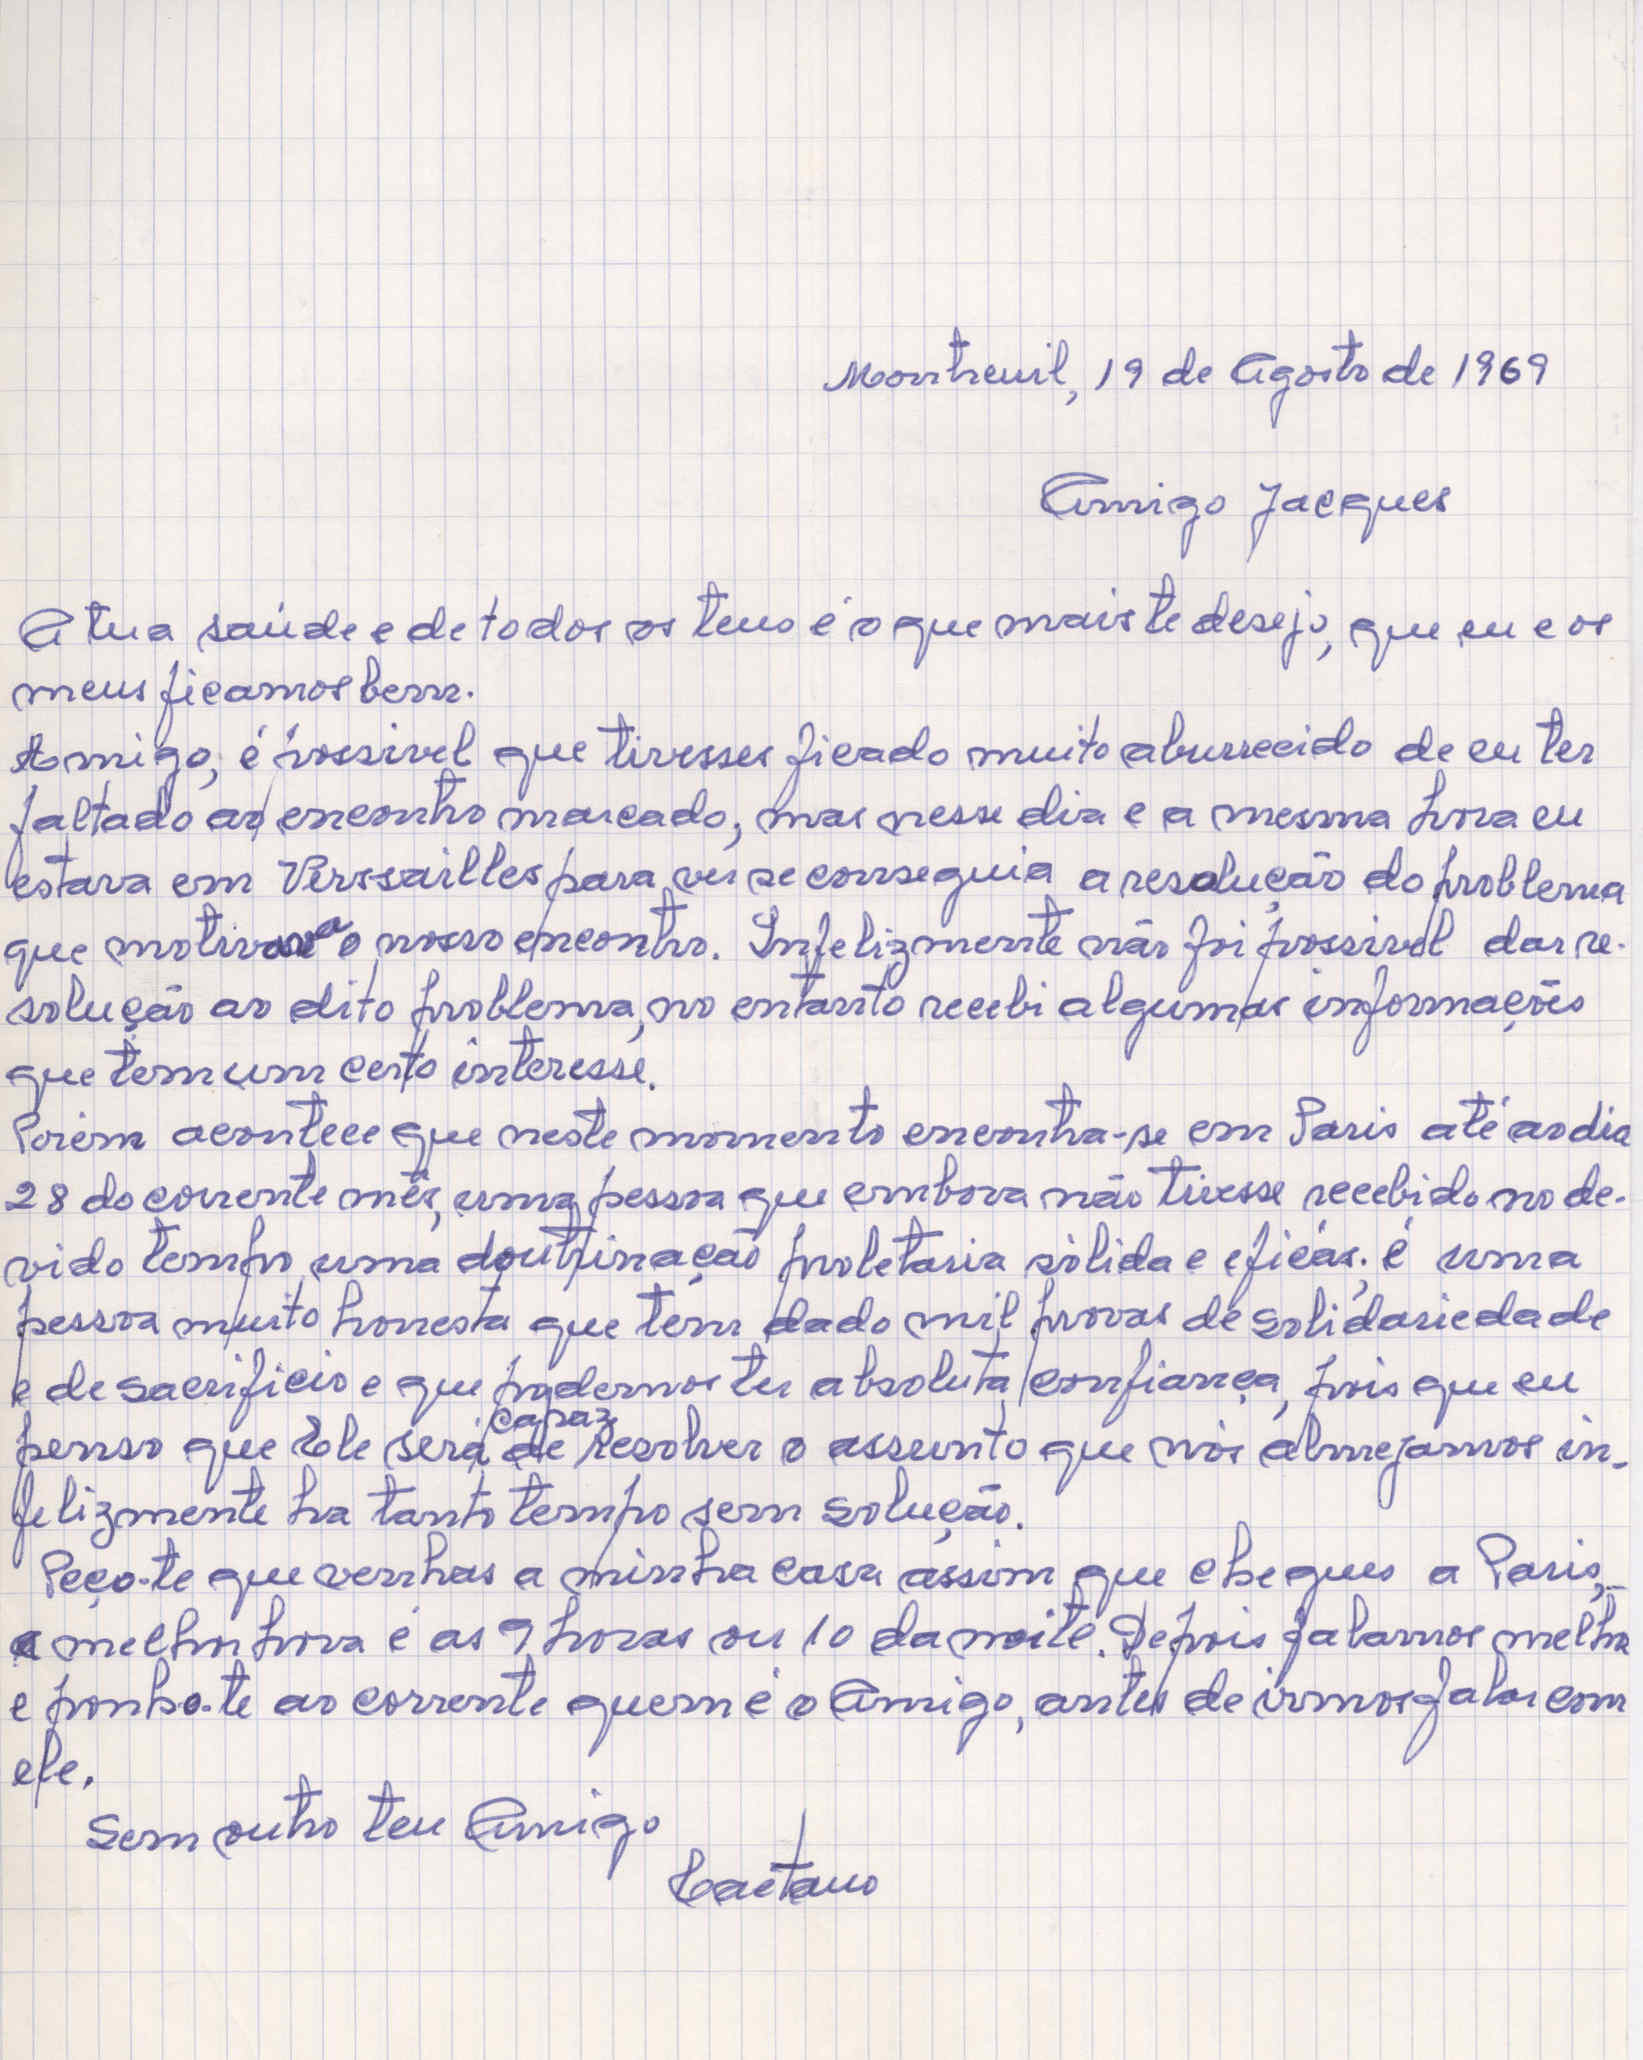 Montreuil, 19 de Agosto de 1969
Amigo Jacques
A tua saúde e de todos os teus é o que mais te desejo, que eu e os
meus ficamos bem.
Amigo, é possivel que tivesses ficado muito aburrecido de eu ter
faltado ao encontro marcado, mas nesse dia e a mesma hora eu
estava em Verssailles para ver se conseguia a resolução do problema
que motivava o nosso encontro. Infelizmente não foi possivel dar re-
solução ao dito problema, no entanto recebi algumas informações
que tem um certo interesse.
Porém acontece que neste momento encontra-se em Paris até ao dia
28 do corrente mês, uma pessoa que embora não tivesse recebido no de-
vido tempo uma doutrinação proletaria sólida e eficás, é uma
pessoa muito honesta que tem dado mil provas de solidariedade
e de sacrificio e que podemos ter absoluta confiança, pois que eu
penso que Ele será capaz de resolver o assunto que nós almejamos in-
felizmente ha tanto tempo sem solução.
Peço-te que venhas a minha casa assim que chegues a Paris,
a melhor hora é as 9 horas ou 10 da noite. Depois falamos melhor
e ponho-te ao corrente quem é o Amigo, antes de irmos falar com
ele.
Sem outro teu Amigo
Caetano